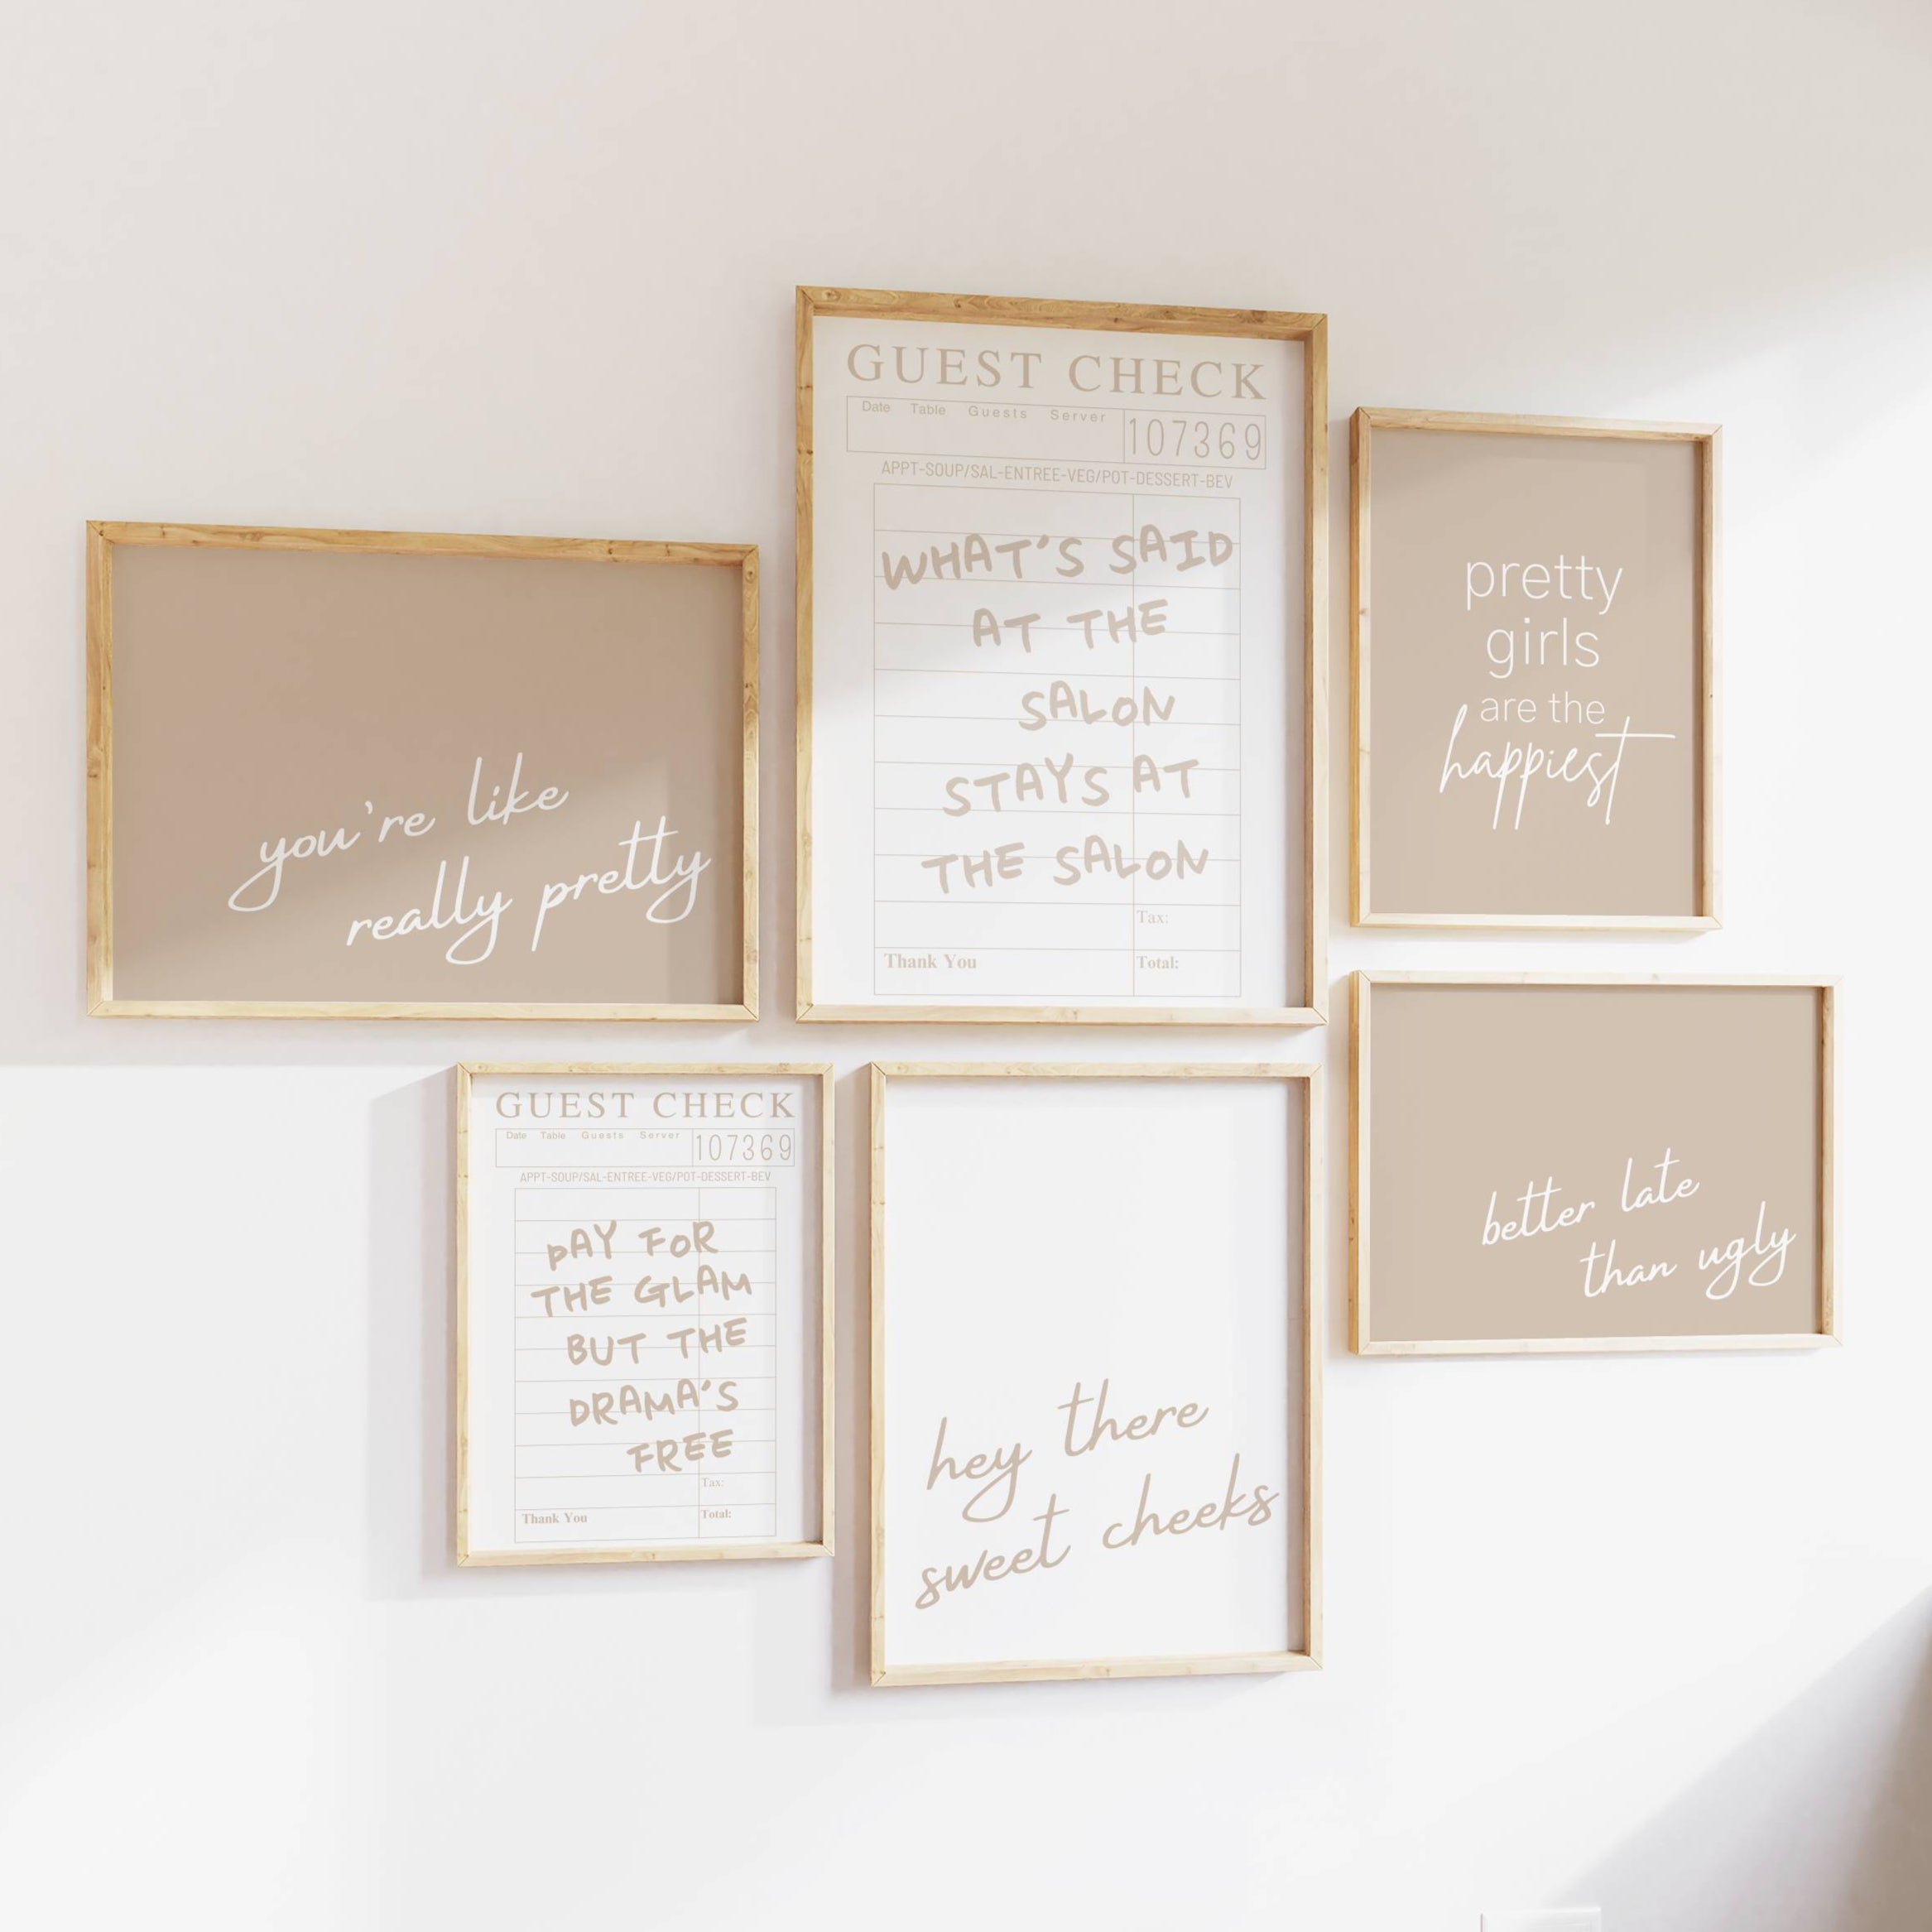 you're like
really pretty
GUEST CHECK
Date Table Guests Server
107369
APPT-SOUP/SAL-ENTREE-VEG/POT-DESSERT-BEV
WHAT'S SAID
AT THE
SALON
STAYS AT
THE SALON
Tax:
Thank You Total:
pretty
girls
are the
happiest
GUEST CHECK
Date Table Guests Server
107369
APPT-SOUP/SAL-ENTREE-VEG/POT-DESSERT-BEV
PAY FOR
THE GLAM
BUT THE
DRAMA'S
FREE
Tax:
Thank You Total:
hey there
sweet cheeks
better late
than ugly